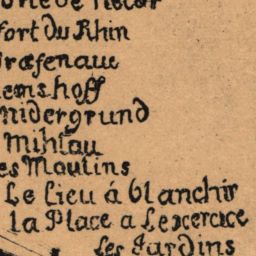 fort Du Rhin
Græfenaue
emshoff
Nidergrund
Mihlau
es Moulins
Le Lieu á blanchir
la Place a Lexercice
Les Jardins